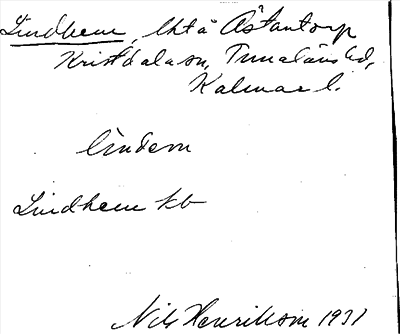 Lindhem, lht å Åstantorp
Kristdala sn, Tunaläns hd,
Kalmar l.
linden
Lindhem kb
Nils Henrikson 1931